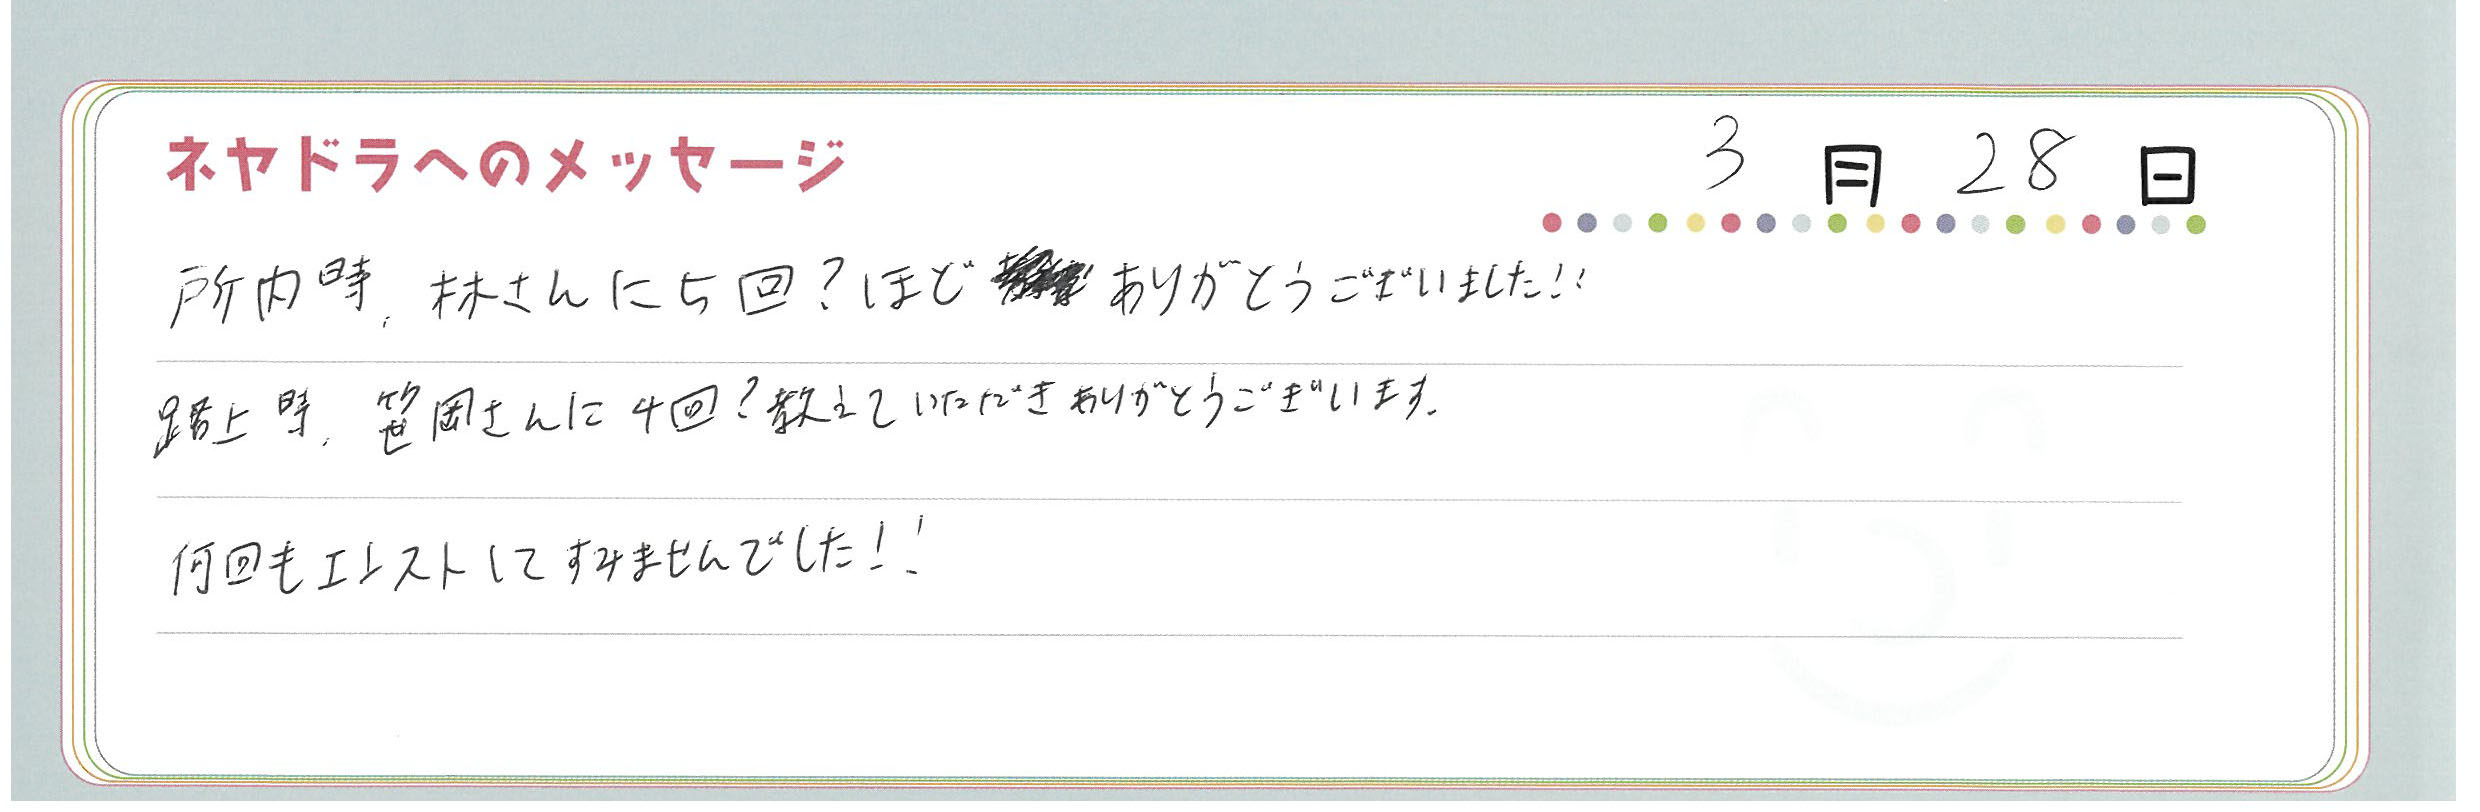 ネヤドラへのメッセージ 3月28日
所内時、林さんに5回?ほどありがとうございました!!
路上時、笹岡さんに4回?教えていただきありがとうございます。
何回もエンストしてすみませんでした!!